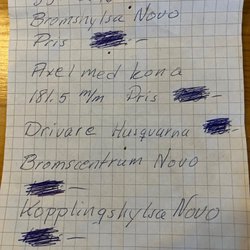 Bromshylsa Novo
Pris —
Axel med kona
181.5 m/m Pris —
Drivare Husqvarna —
Bromscentrum Novo
—
Kopplingshylsa Novo
—